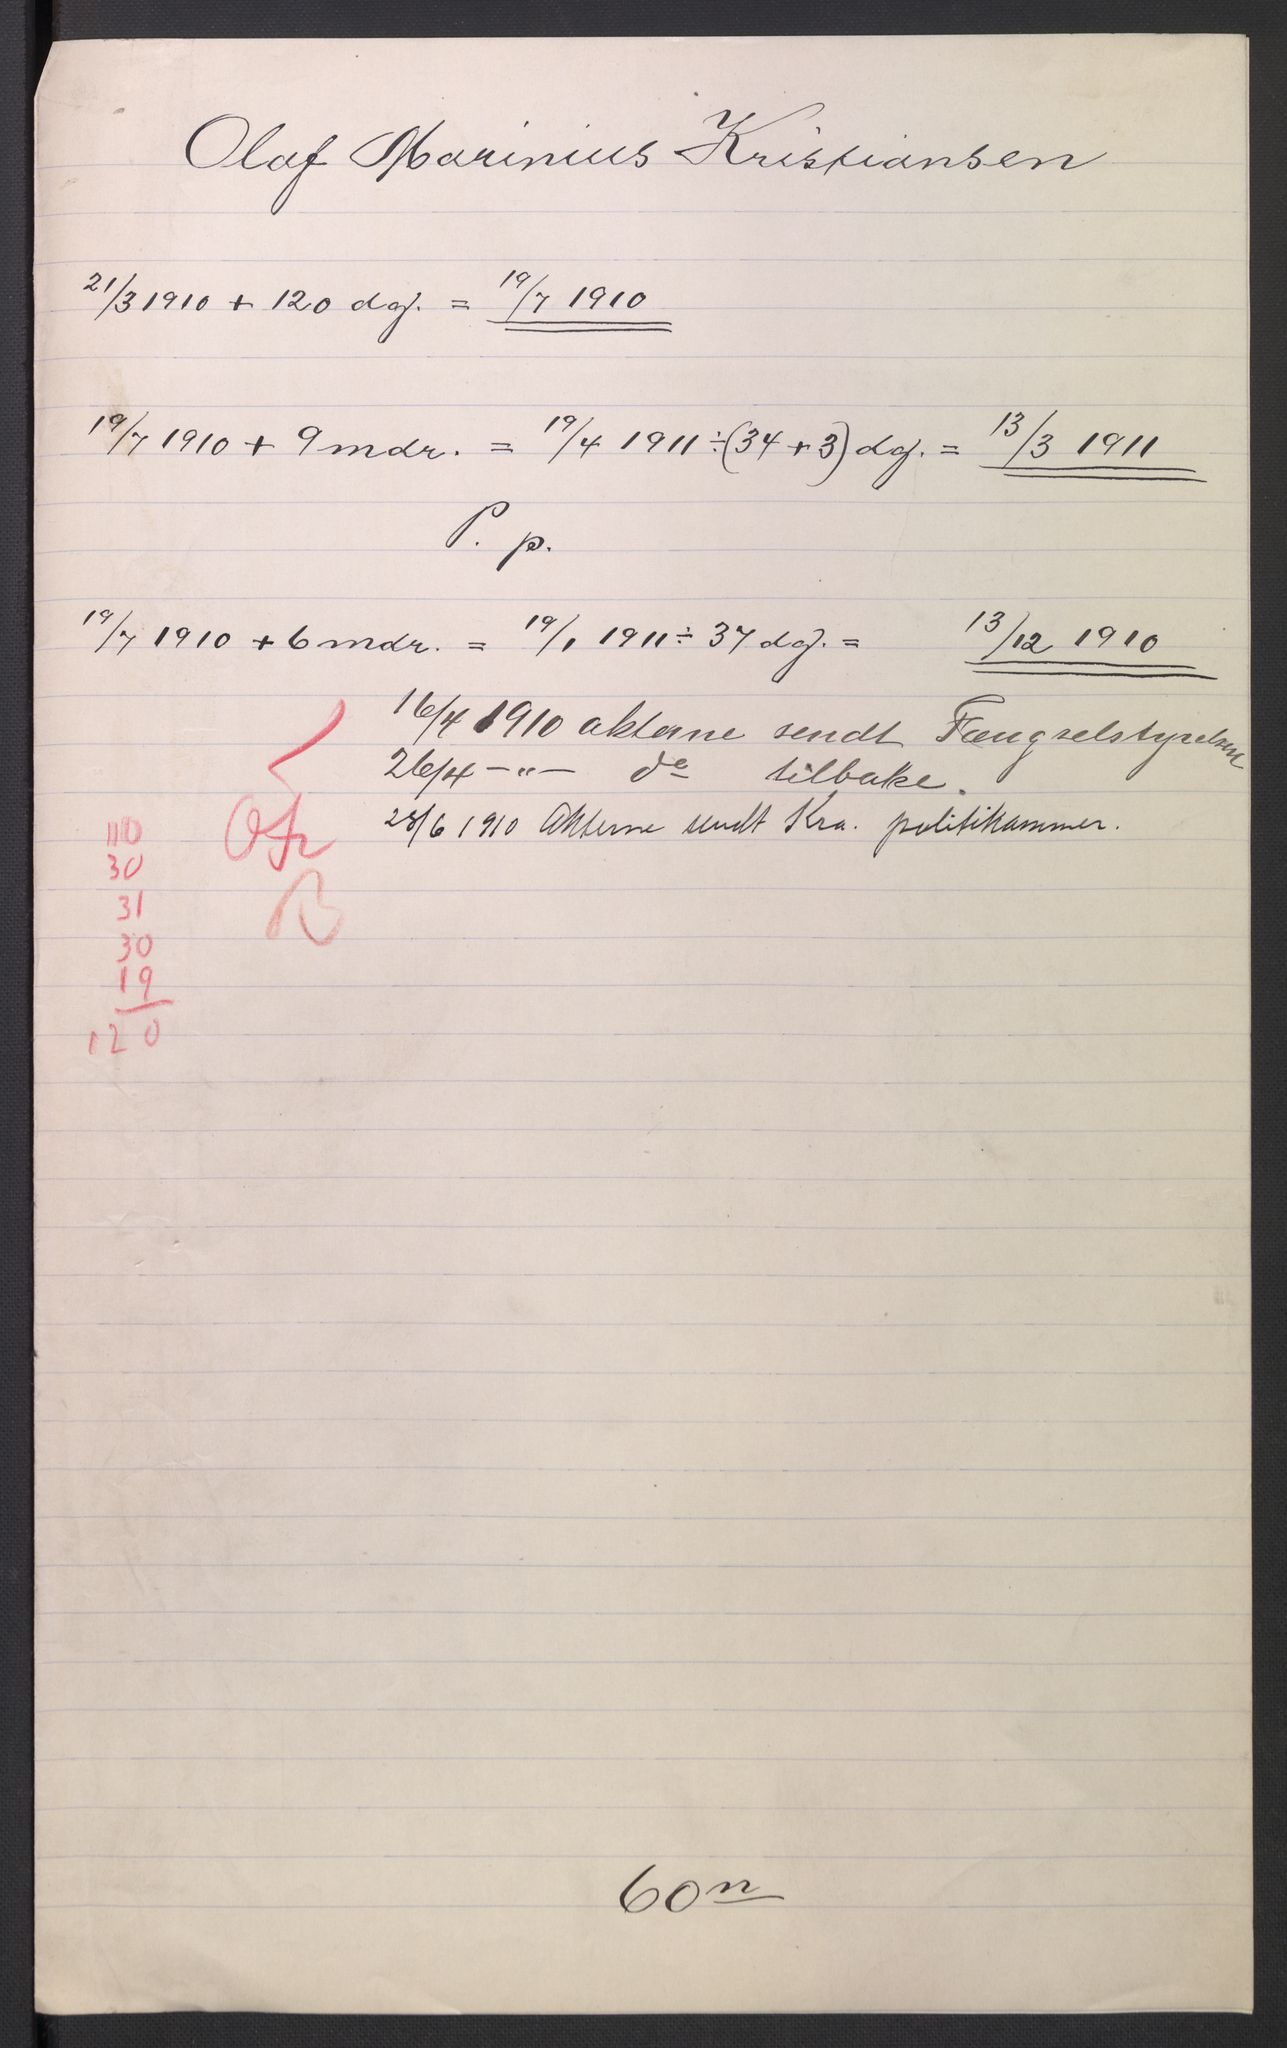 Olaf Marinius Kristiansen
21/3 1910 + 120 dg. = 19/7 1910
19/7 1910 + 9 mdr. = 19/4 1911 ÷ (34 + 3) dg. = 13/3 1911
P. p.
19/7 1910 + 6 mdr. = 19/1 1911 ÷ 37 dg. = 13/12 1910
16/4 1910 akterne sendt Fængselstyrelsen
26/4 -"- do tilbake.
28/6 1910 Akterne sendt Kra. politikammer.
110
30
31
30
19
120
60n